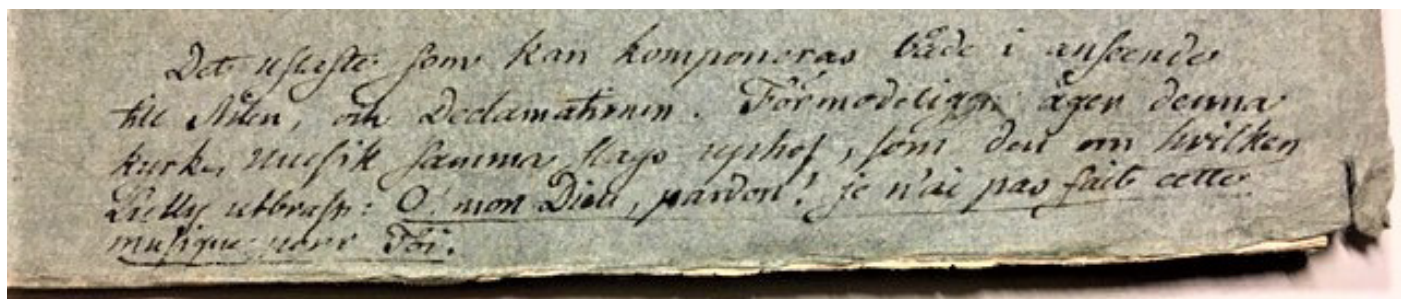 Det uslaste som kan komponeras både i anseende
till Stilen, och Declamationen. Förmodeligen äger denna
kyrko Musik samma slags uphof, som den om hvilken
Lully utbrast: O! mon Dieu, pardon! je n'ai pas fait cette
musique pour Toi.